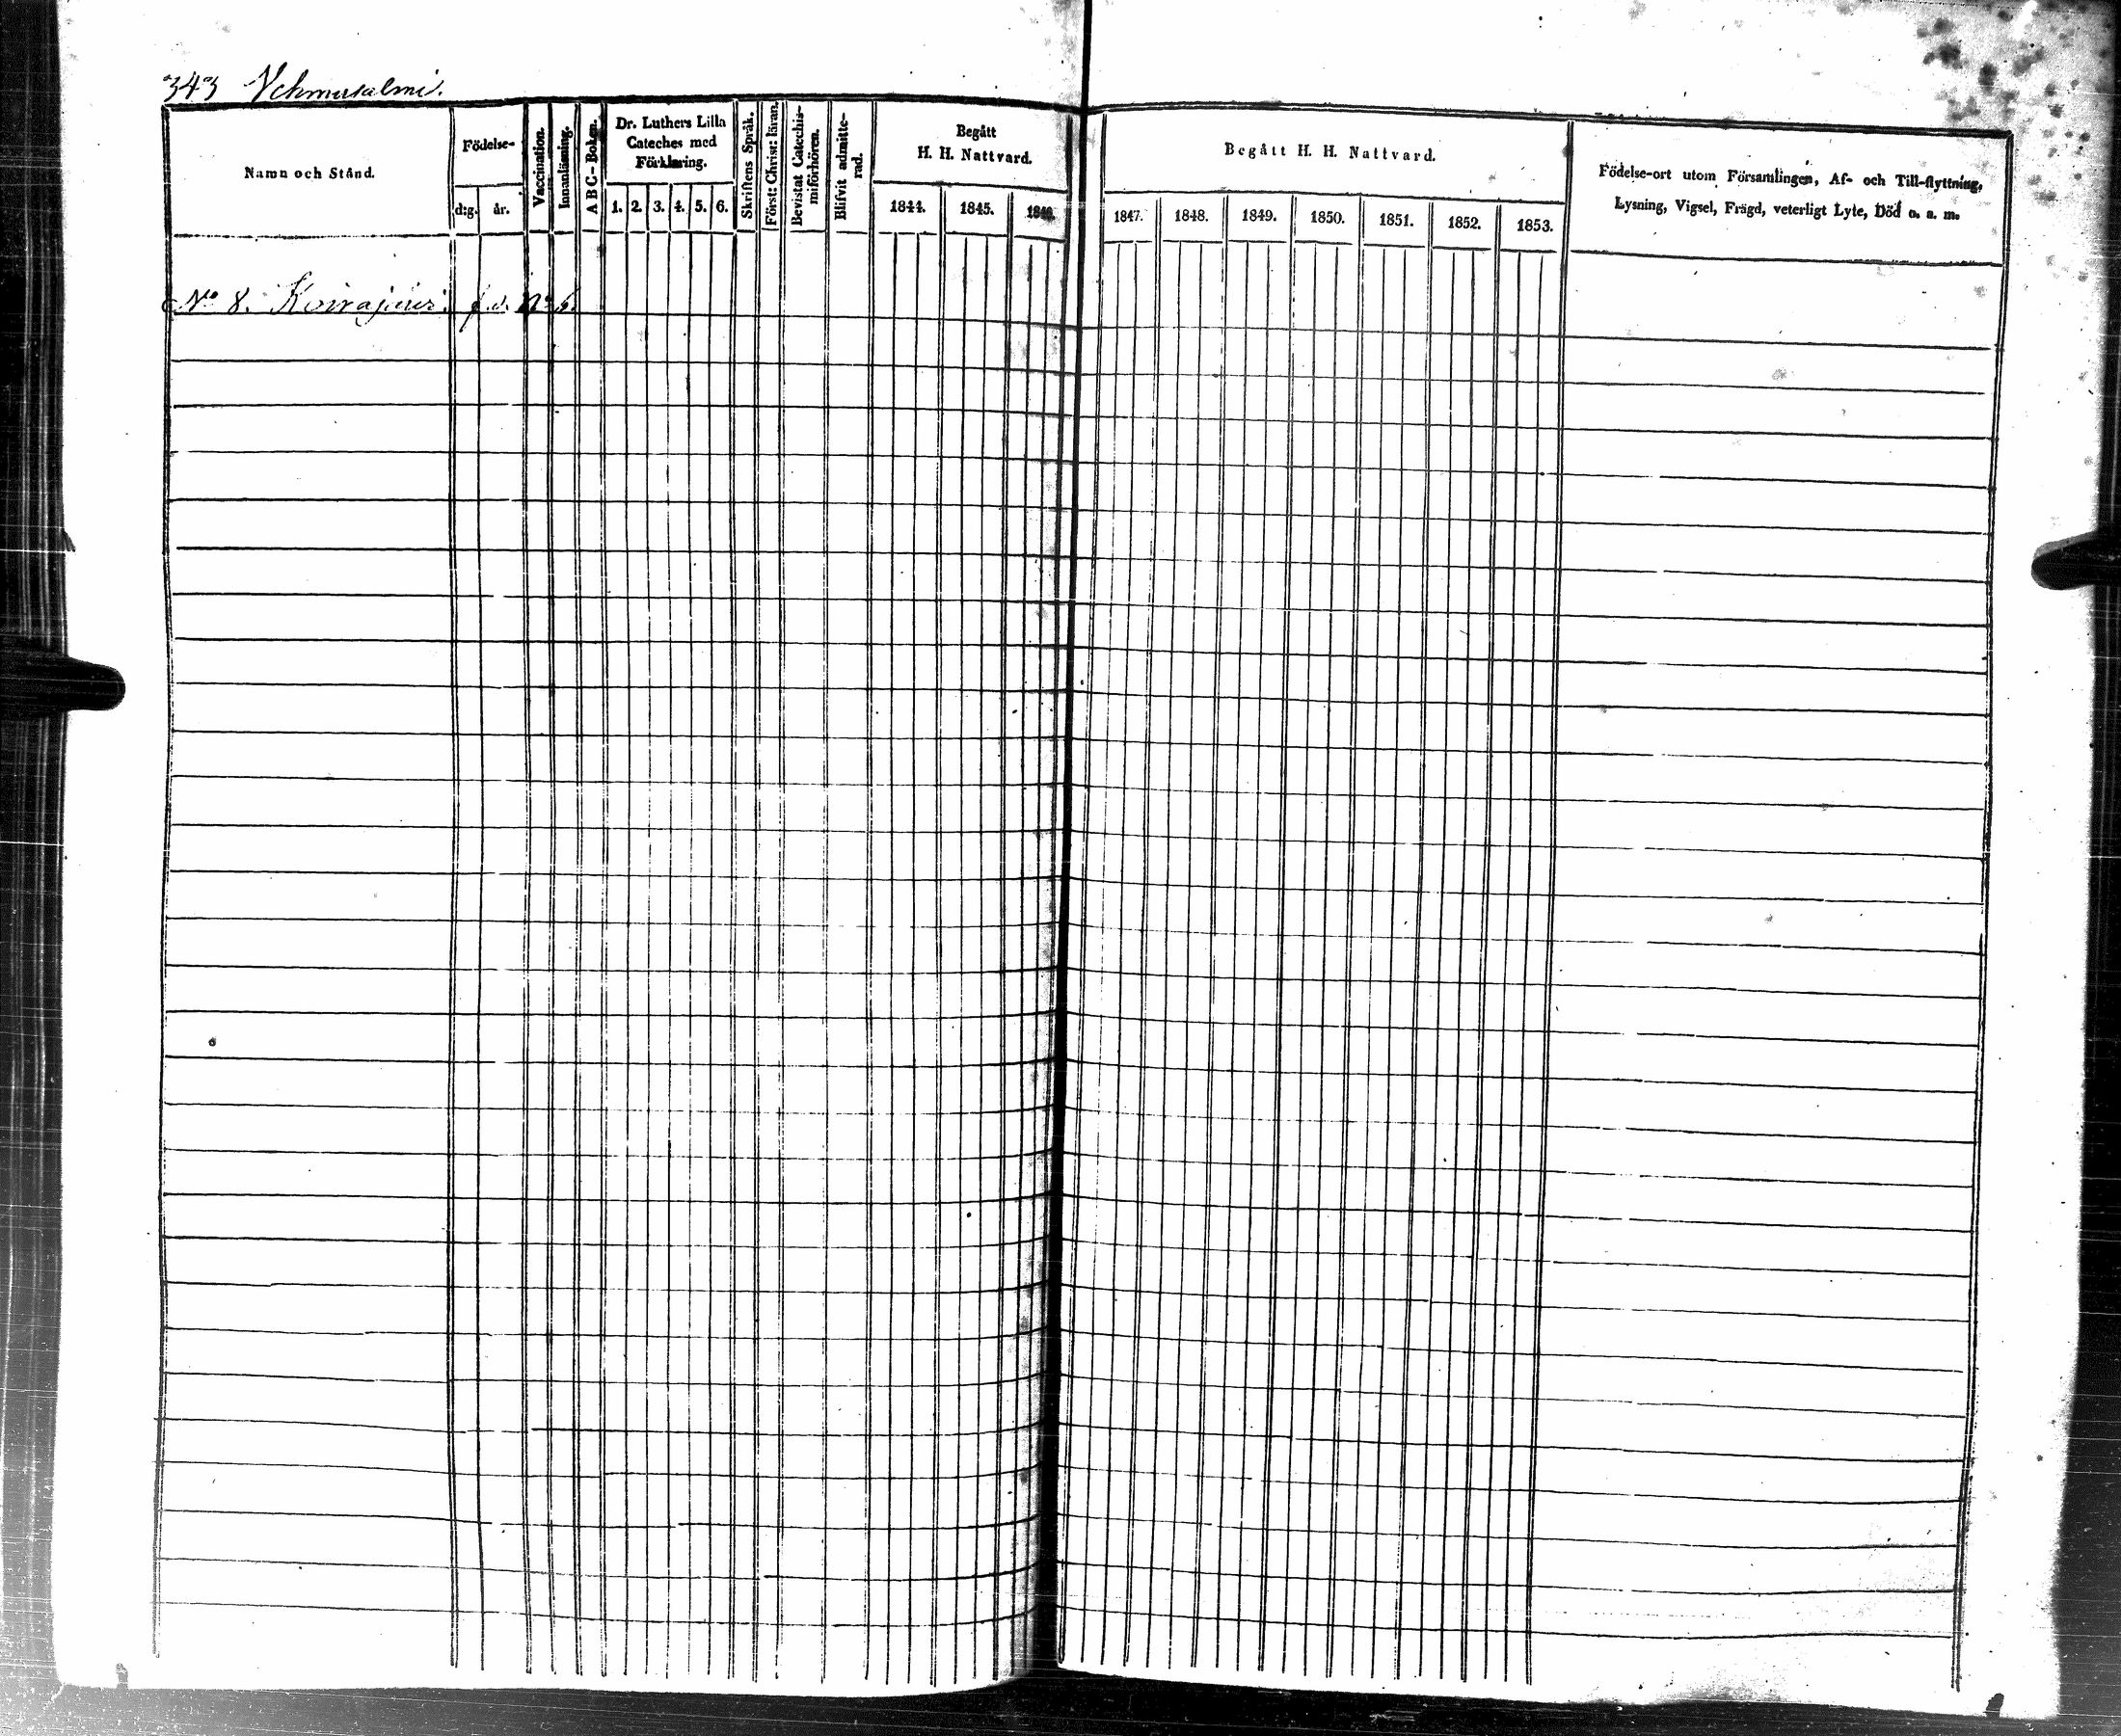 343 Vehmasalmi.
Namn och Stånd.
Födelse-
d:g. år.
Vaccination.
Innanläsning.
A B C-Boken.
Dr. Luthers Lilla
Cateches med
Förklaring.
1. 2. 3. 4. 5. 6.
Skriftens Språk.
Först: Christ: läran.
Bevistat Catechis-
miförhören.
Blifvit admitte-
rad.
Begått
H. H. Nattvard.
1844. 1845. 1846.
Begått H. H. Nattvard.
1847. 1848. 1849. 1850. 1851. 1852. 1853.
Födelse-ort utom Församlingen, Af- och Till-flyttning,
Lysning, Vigsel, Frägd, veterligt Lyte, Död o. s. m.
No 8. Koirajärvi. f. d. No 6.